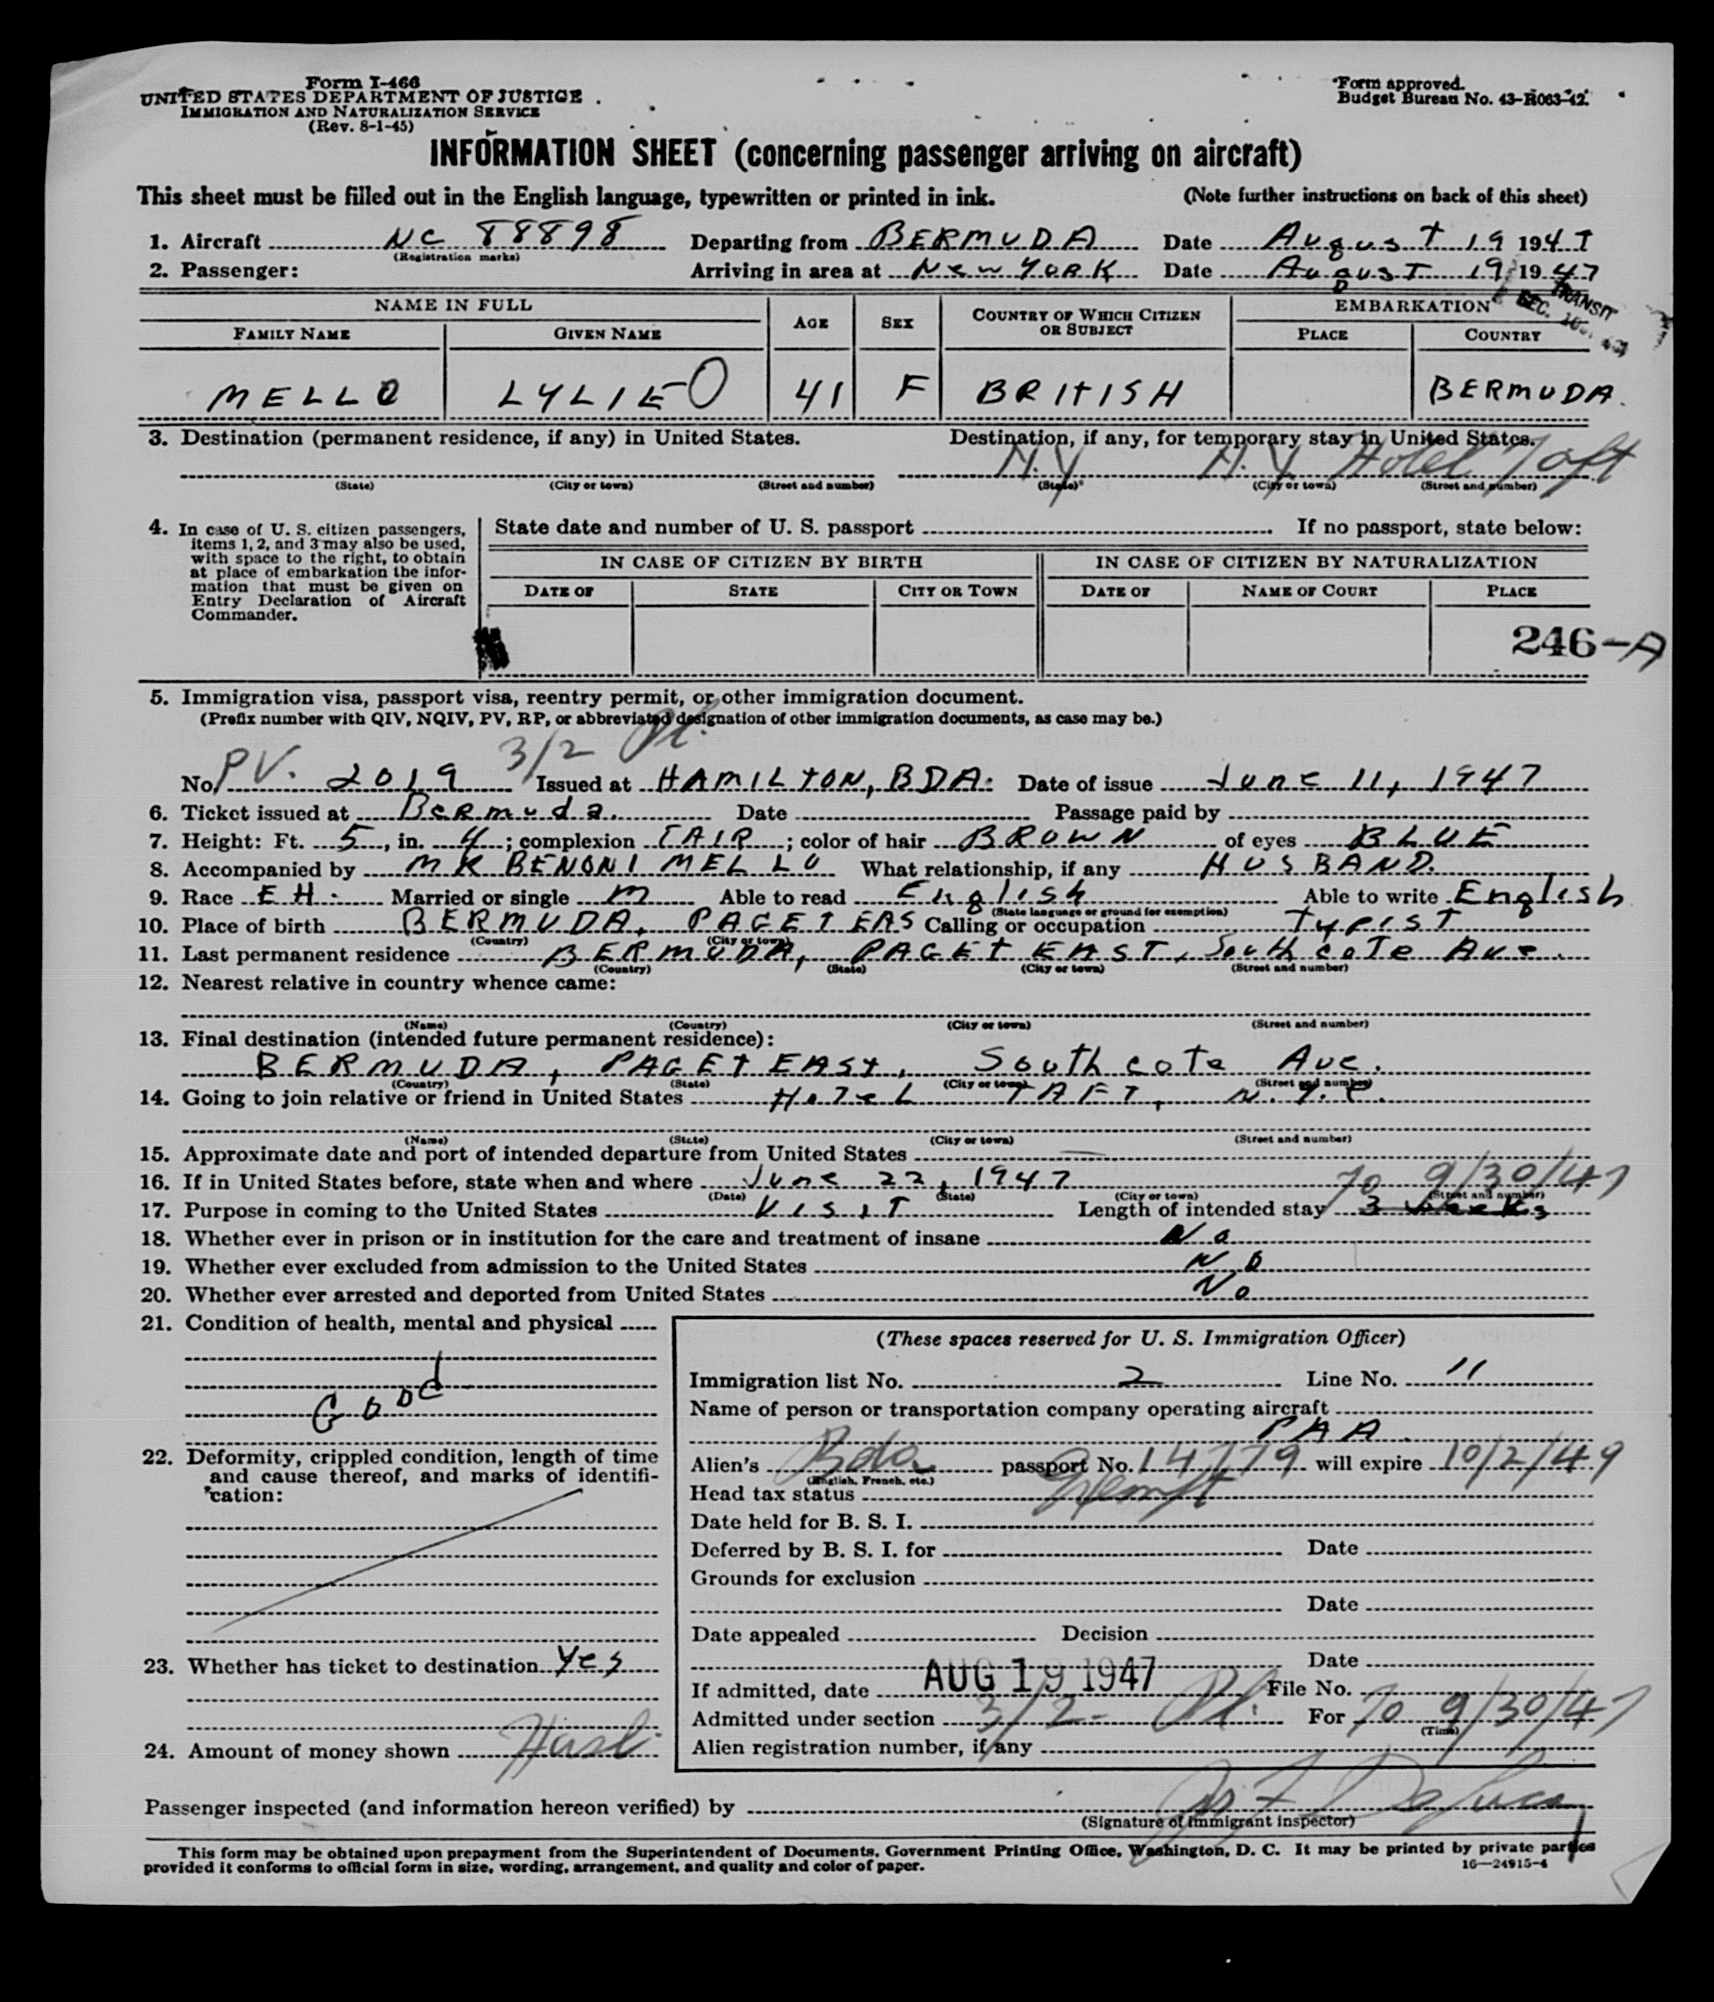 Form I-466
UNITED STATES DEPARTMENT OF JUSTICE
IMMIGRATION AND NATURALIZATION SERVICE
(Rev. 8-1-45)
Form approved.
Budget Bureau No. 43-R063-42.
INFORMATION SHEET (concerning passenger arriving on aircraft)
This sheet must be filled out in the English language, typewritten or printed in ink. (Note further instructions on back of this sheet)
1. Aircraft NC 88898 Departing from BERMUDA Date August 19 1947
(Registration marks)
2. Passenger: Arriving in area at NEW YORK Date AUGUST 19 1947
TRANSIT
SEC.
NAME IN FULL AGE SEX COUNTRY OF WHICH CITIZEN OR SUBJECT EMBARKATION
FAMILY NAME GIVEN NAME PLACE COUNTRY
MELLO LYLIE O 41 F BRITISH BERMUDA.
3. Destination (permanent residence, if any) in United States. Destination, if any, for temporary stay in United States.
N.Y N.Y. Hotel Taft
(State) (City or town) (Street and number) (State) (City or town) (Street and number)
4. In case of U. S. citizen passengers, items 1, 2, and 3 may also be used, with space to the right, to obtain at place of embarkation the information that must be given on Entry Declaration of Aircraft Commander.
State date and number of U. S. passport If no passport, state below:
IN CASE OF CITIZEN BY BIRTH IN CASE OF CITIZEN BY NATURALIZATION
DATE OF STATE CITY OR TOWN DATE OF NAME OF COURT PLACE
246-A
5. Immigration visa, passport visa, reentry permit, or other immigration document.
(Prefix number with QIV, NQIV, PV, RP, or abbreviated designation of other immigration documents, as case may be.)
3/2
No. PV. 2019 Issued at HAMILTON, BDA. Date of issue June 11, 1947
6. Ticket issued at Bermuda. Date Passage paid by
7. Height: Ft. 5, in. 4; complexion FAIR; color of hair BROWN of eyes BLUE
8. Accompanied by MR BENONI MELLO What relationship, if any HUSBAND.
9. Race EH. Married or single M Able to read English Able to write English
(State language or ground for exemption)
10. Place of birth BERMUDA, PAGET EAS Calling or occupation TYPIST
(Country) (City or town)
11. Last permanent residence BERMUDA, PAGET EAST, South cote Ave.
(Country) (State) (City or town) (Street and number)
12. Nearest relative in country whence came:
(Name) (Country) (City or town) (Street and number)
13. Final destination (intended future permanent residence):
BERMUDA, PAGET EAST, South cote Ave.
(Country) (State) (City or town) (Street and number)
14. Going to join relative or friend in United States HoTeL TAFT, N.Y.C.
(Name) (State) (City or town) (Street and number)
15. Approximate date and port of intended departure from United States —
16. If in United States before, state when and where June 22, 1947 To 9/30/47
(Date) (State) (City or town) (Street and number)
17. Purpose in coming to the United States VISIT Length of intended stay 3 Weeks
18. Whether ever in prison or in institution for the care and treatment of insane No
19. Whether ever excluded from admission to the United States No
20. Whether ever arrested and deported from United States No
21. Condition of health, mental and physical
Good
22. Deformity, crippled condition, length of time and cause thereof, and marks of identification:
23. Whether has ticket to destination Yes
24. Amount of money shown
(These spaces reserved for U. S. Immigration Officer)
Immigration list No. 2 Line No. 11
Name of person or transportation company operating aircraft
PAA.
Alien's Bda passport No. 14779 will expire 10/2/49
(English, French, etc.)
Head tax status Exempt
Date held for B. S. I.
Deferred by B. S. I. for Date
Grounds for exclusion
Date
Date appealed Decision
Date
If admitted, date AUG 19 1947 File No.
Admitted under section 3/2- For To 9/30/47
(Time)
Alien registration number, if any
Passenger inspected (and information hereon verified) by
(Signature of immigrant inspector)
This form may be obtained upon prepayment from the Superintendent of Documents, Government Printing Office, Washington, D. C. It may be printed by private parties
provided it conforms to official form in size, wording, arrangement, and quality and color of paper.
16—24915-4